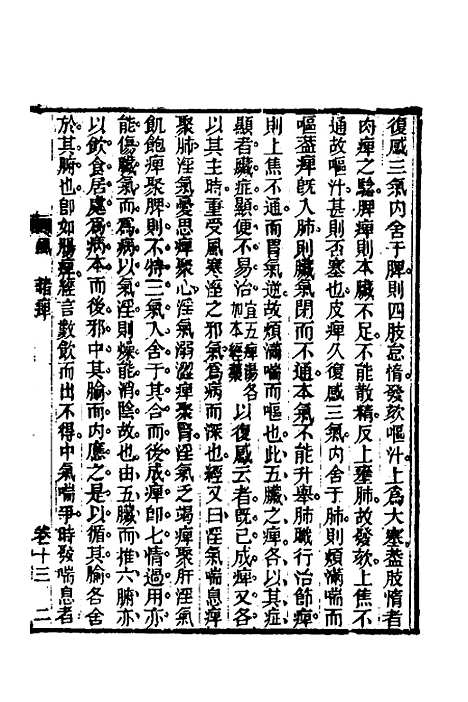 復感三氣内舍于脾則四肢怠惰發欬嘔汁上為大塞蓋肢惰者
肉痺之驗脾痺則本臟不足不能散精反上壅肺故發欬上焦不
通故嘔汁甚則否塞也皮痺久復感三氣内舍于肺則煩滿喘而
嘔蓋痺既入肺則臟氣閉而不通本氣不能升舉肺職行治節痺
則上焦不通而胃氣逆故煩滿喘而嘔也此五臟之痺各以其症
顯者臟症顯便不易治宜五痺湯各加本經藥以復感云者既已成痺又各
以其主時重受風寒淫之邪氣為病而深也經又曰淫氣喘息痺
聚肺淫氣憂思痺聚心淫氣溺澀痺聚腎淫氣乏竭痺聚肝淫氣
飢飽痺聚脾則不特三氣入舍于其合而後成痺即七情過用亦
能傷臟氣而為病以氣淫則燥能消陰故也由五臟而推六腑亦
以飲食居處為病本而後邪中其腧而内應之是以循其腧各舍
於其腑也即如腸痺經言數飲而出不得中氣喘爭時發喘息者
風 諸痺 卷十三 二